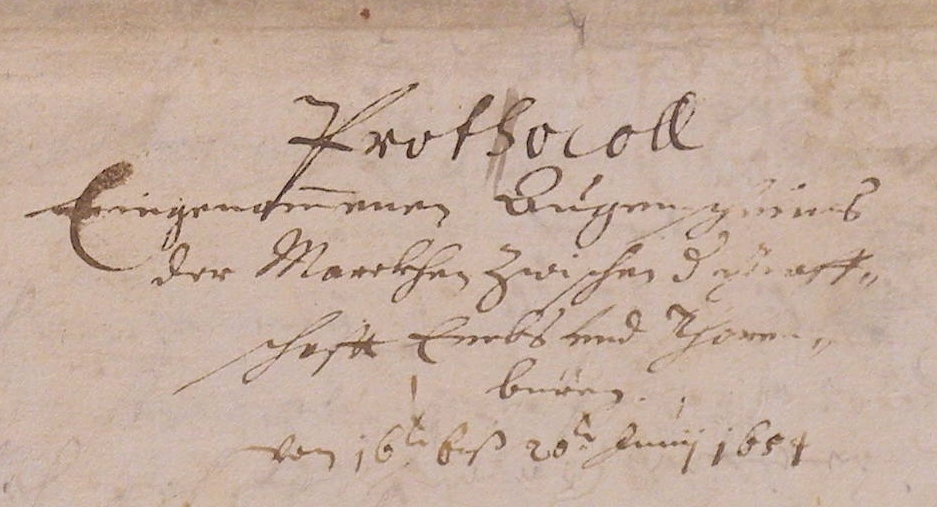 Prothocoll
Eingenom̅enen Augenscheins
der Marckhen Zwischen d graff„
schafft Embs und Thoren„
büren.
Von 16ten biß 20ten Junij 1654